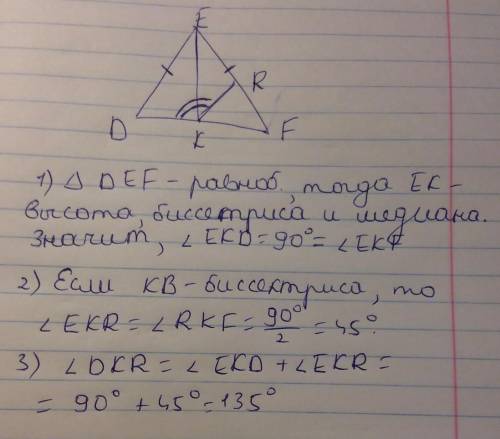 E
R
D
K
F
1) △ DEF - равноб., тогда EK -
высота, биссектриса и медиана.
Значит, ∠EKD = 90° = ∠EKF
2) Если KB - биссектриса, то
∠EKR = ∠RKF = 90°/2 = 45°.
3) ∠DKR = ∠EKD + ∠EKR =
= 90° + 45° = 135°